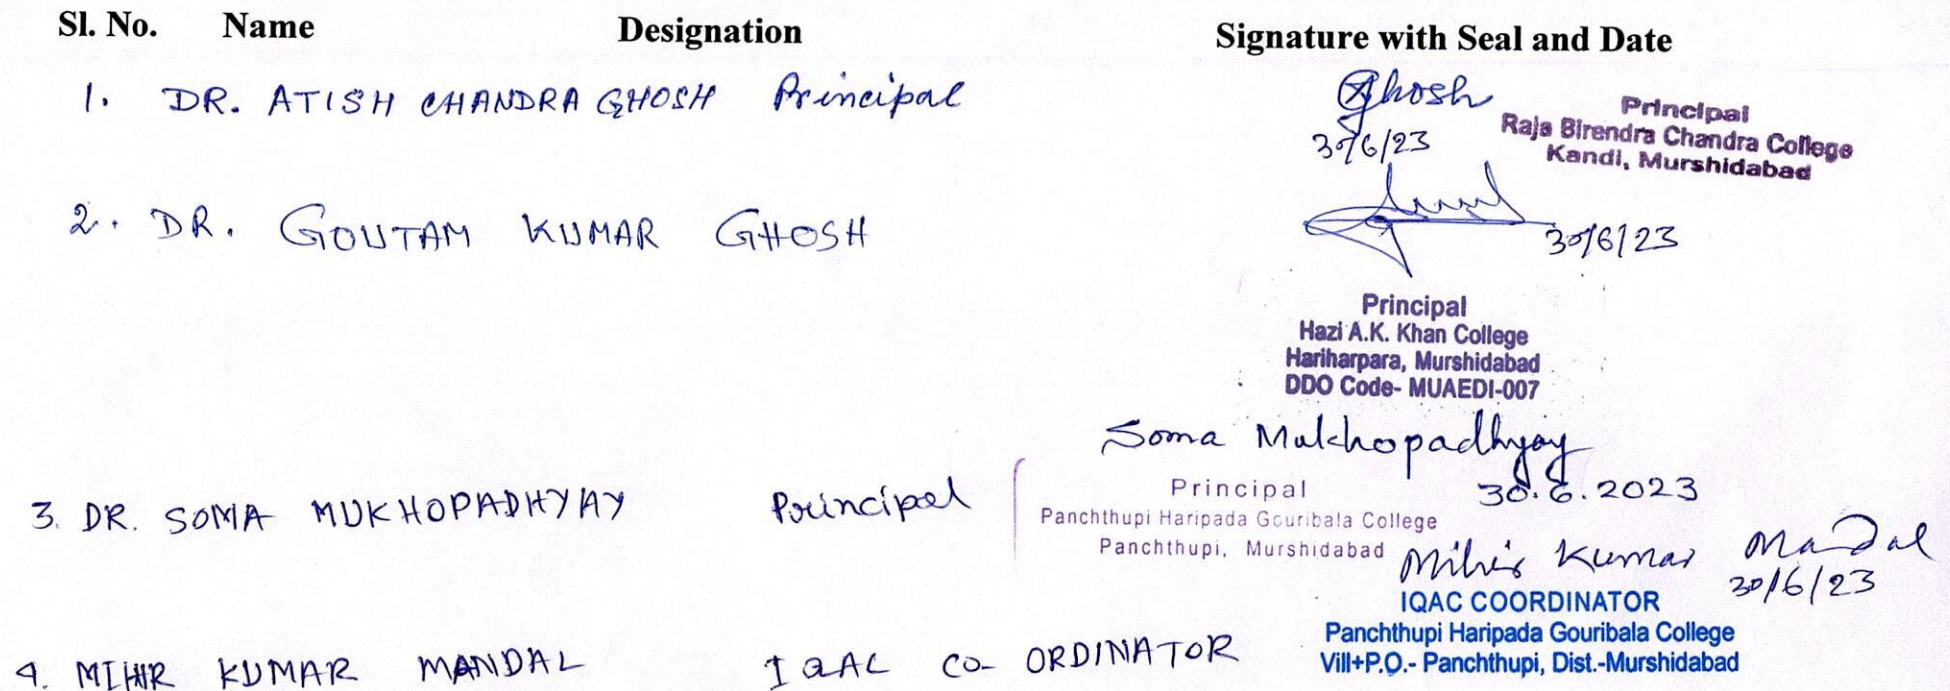 Sl. No. Name Designation Signature with Seal and Date
1. DR. ATISH CHANDRA GHOSH Principal
Ghosh
30/6/23
Principal
Raja Birendra Chandra College
Kandi, Murshidabad
2. DR. GOUTAM KUMAR GHOSH
30/6/23
Principal
Hazi A.K. Khan College
Hariharpara, Murshidabad
DDO Code- MUAEDI-007
3. DR. SOMA MUKHOPADHYAY Principal
Soma Mukhopadhyay
30.6.2023
Principal
Panchthupi Haripada Gouribala College
Panchthupi, Murshidabad
4. MIHIR KUMAR MANDAL IQAC CO-ORDINATOR
Mihir Kumar Mandal
30/6/23
IQAC COORDINATOR
Panchthupi Haripada Gouribala College
Vill+P.O.- Panchthupi, Dist.-Murshidabad